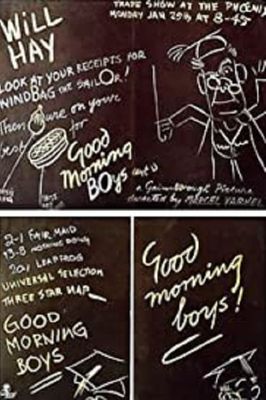 WILL
HAY
TRADE SHOW AT THE PHOENIX
MONDAY JAN 25th AT 8-45
LOOK AT YOUR RECEIPTS FOR
WINDBAG THE SAILOR!
Then
on your
for
Good
Morning
BOys
a Gainsborough Picture
directed by MARCEL VARNEL
2-1 FAIR MAID
13-8 NOTHING DOING
20/1 LEAPFROG
UNIVERSAL SELECTION
THREE STAR MAP
GOOD
MORNING
BOYS
Good
morning
boys!